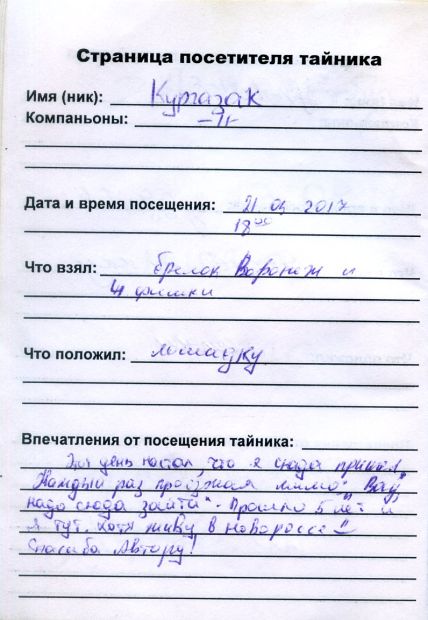 Страница посетителя тайника
Имя (ник): Кургазак
Компаньоны:
Дата и время посещения: 21 2017
18 00
Что взял: брелок Воронеж и
4 фишки
Что положил: лошадку
Впечатления от посещения тайника:
Этот день настал, что я сюда пришел.
Каждый раз проезжая мимо: "
надо сюда зайти". Прошло 5 лет и
я тут, хотя живу в Новороссе!!
Спасибо Автору!